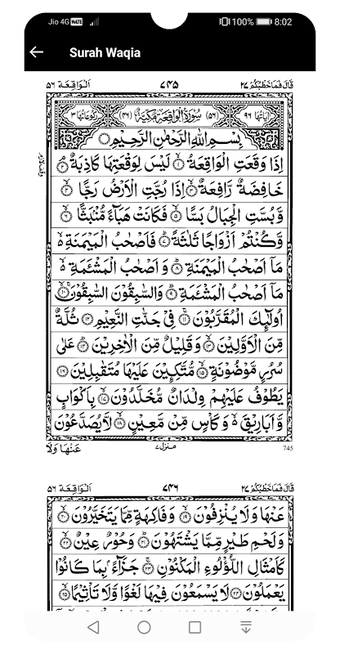 Jio 4G 100% 8:02
Surah Waqia
الواقعة ٥٦ ٧٤٥ قال فما خطبكم ٢٧
اٰیاتها ٩٦ (٥٦) سُوْرَةُ الْوَاقِعَةِ مَكِّيَّةٌ (٤٦) رکوعاتها ٣
بِسْمِ اللهِ الرَّحْمٰنِ الرَّحِيْمِ
اِذَا وَقَعَتِ الْوَاقِعَةُ ١ لَيْسَ لِوَقْعَتِهَا كَاذِبَةٌ ٢
خَافِضَةٌ رَّافِعَةٌ ٣ اِذَا رُجَّتِ الْاَرْضُ رَجًّا ٤
وَّ بُسَّتِ الْجِبَالُ بَسًّا ٥ فَكَانَتْ هَبَآءً مُّنْۢبَثًّا ٦
وَّ كُنْتُمْ اَزْوَاجًا ثَلٰثَةً ٧ فَاَصْحٰبُ الْمَيْمَنَةِ
مَاۤ اَصْحٰبُ الْمَيْمَنَةِ ٨ وَ اَصْحٰبُ الْمَشْـَٔمَةِ
مَاۤ اَصْحٰبُ الْمَشْـَٔمَةِ ٩ وَ السّٰبِقُوْنَ السّٰبِقُوْنَ ١٠
اُولٰٓىِٕكَ الْمُقَرَّبُوْنَ ١١ فِيْ جَنّٰتِ النَّعِيْمِ ١٢ ثُلَّةٌ
مِّنَ الْاَوَّلِيْنَ ١٣ وَ قَلِيْلٌ مِّنَ الْاٰخِرِيْنَ ١٤ عَلٰى
سُرُرٍ مَّوْضُوْنَةٍ ١٥ مُّتَّكِـِٕيْنَ عَلَيْهَا مُتَقٰبِلِيْنَ ١٦
يَطُوْفُ عَلَيْهِمْ وِلْدَانٌ مُّخَلَّدُوْنَ ١٧ بِاَكْوَابٍ
وَّ اَبَارِيْقَ وَ كَاْسٍ مِّنْ مَّعِيْنٍ ١٨ لَّا يُصَدَّعُوْنَ
عَنْهَا وَلَا منزل ٧ 745
الواقعة ٥٦ ٧٤٦ قال فما خطبكم ٢٧
عَنْهَا وَ لَا يُنْزِفُوْنَ ١٩ وَ فَاكِهَةٍ مِّمَّا يَتَخَيَّرُوْنَ ٢٠
وَ لَحْمِ طَيْرٍ مِّمَّا يَشْتَهُوْنَ ٢١ وَ حُوْرٌ عِيْنٌ ٢٢
كَاَمْثَالِ اللُّؤْلُؤِ الْمَكْنُوْنِ ٢٣ جَزَآءًۢ بِمَا كَانُوْا
يَعْمَلُوْنَ ٢٤ لَا يَسْمَعُوْنَ فِيْهَا لَغْوًا وَّ لَا تَاْثِيْمًا ٢٥